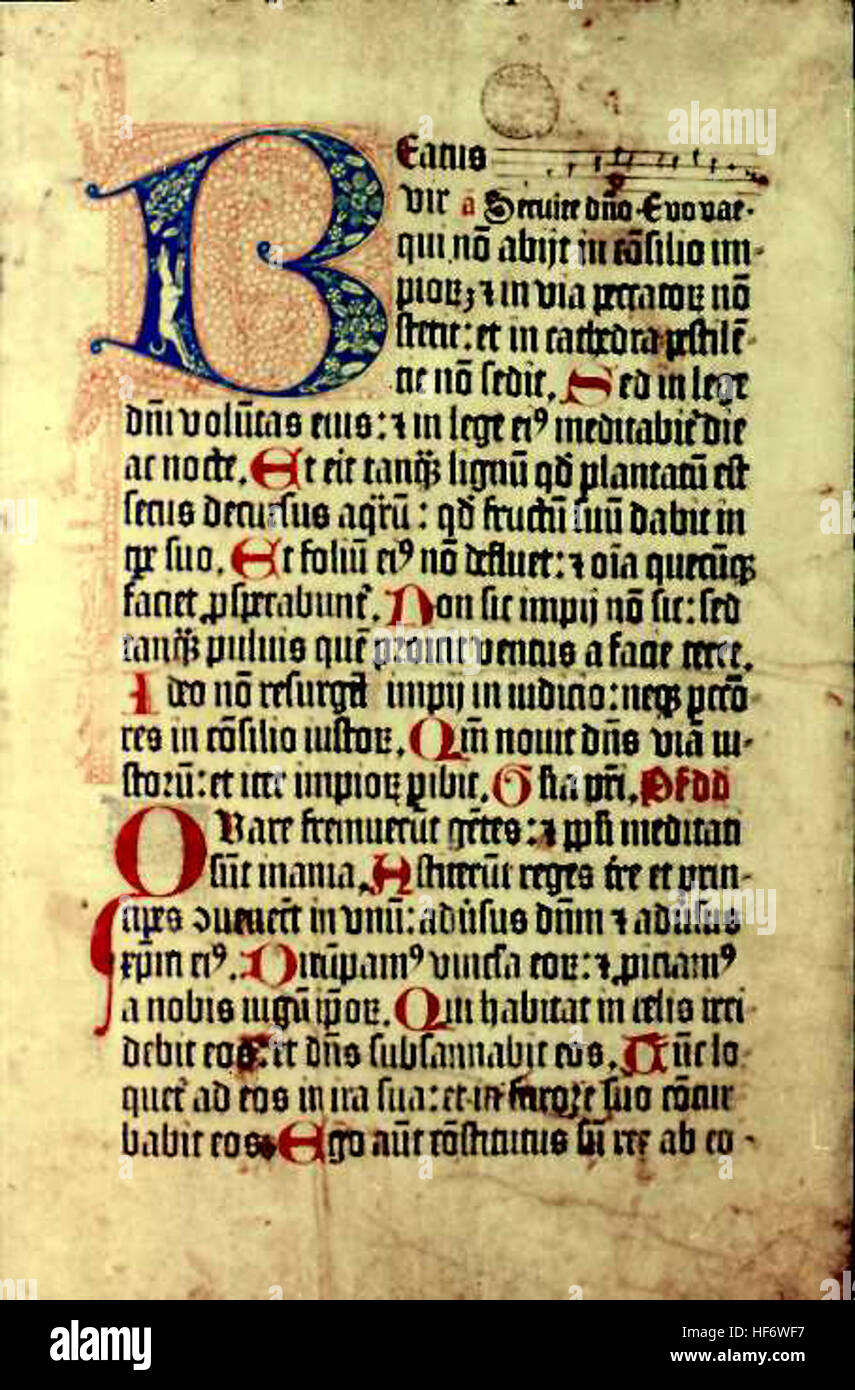 Beatus
vir a Seruite dño. Euouae.
qui nō abijt in cōsilio im-
pioꝝ ⁊ in via peccatoꝝ nō
stetit: et in cathedra pestilē
tie nō sedit. Sed in lege
dñi volūtas eius: ⁊ in lege eiꝰ meditabit̄ die
ac nocte. Et erit tanqͣꝫ lignū qd̄ plantatū est
secus decursus aqͣrū: qd̄ fructū suū dabit in
tp̄e suo. Et foliū eiꝰ nō defluet: ⁊ oīa quecūqꝫ
faciet ꝓsperabunt̄. Non sic impij nō sic: sed
tanqͣꝫ puluis quē proijt ventus a facie terre.
Ideo nō resurgūt impij in iudicio: neqꝫ pctō
res in cōsilio iustoꝝ. Qm̄ nouit dn̄s viā iu-
storū: et iter impioꝝ ꝑibit. Glīa pr̄i. Ps dd
Quare fremuerūt gētes: ⁊ ppl̄i meditati
sūt inania. Astiterūt reges tr̄e et prin-
cipes ꝯuenerūt in vnū: aduīsus dn̄m ⁊ aduīsus
xp̄m eiꝰ. Dirūpamꝰ vincl̄a eoꝝ: ⁊ ꝓiciamꝰ
a nobis iugū ip̄oꝝ. Qui habitat in celis irri
debit eos: et dn̄s subsannabit eos. Tūc lo
quet̄ ad eos in ira sua: et in furore suo cōtur
babit eos. Ego aūt cōstitutus sū rex ab eo-
alamy
alamy
alamy
alamy
HF6WF7
www.alamy.com